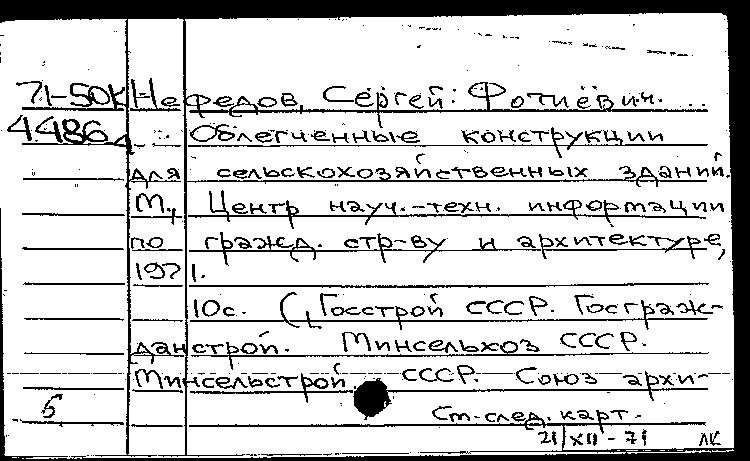 71-50К Нефедов, Сергей Фотиевич.
4486 Облегченные конструкции
для сельскохозяйственных зданий.
М., Центр науч.-техн. информации
по гражд. стр-ву и архитектуре,
1971.
10с. (Госстрой СССР. Госграж-
данстрой. Минсельхоз СССР.
Минсельстрой СССР. Союз архи-
б См.след.карт.
21/XII-71 ЛК